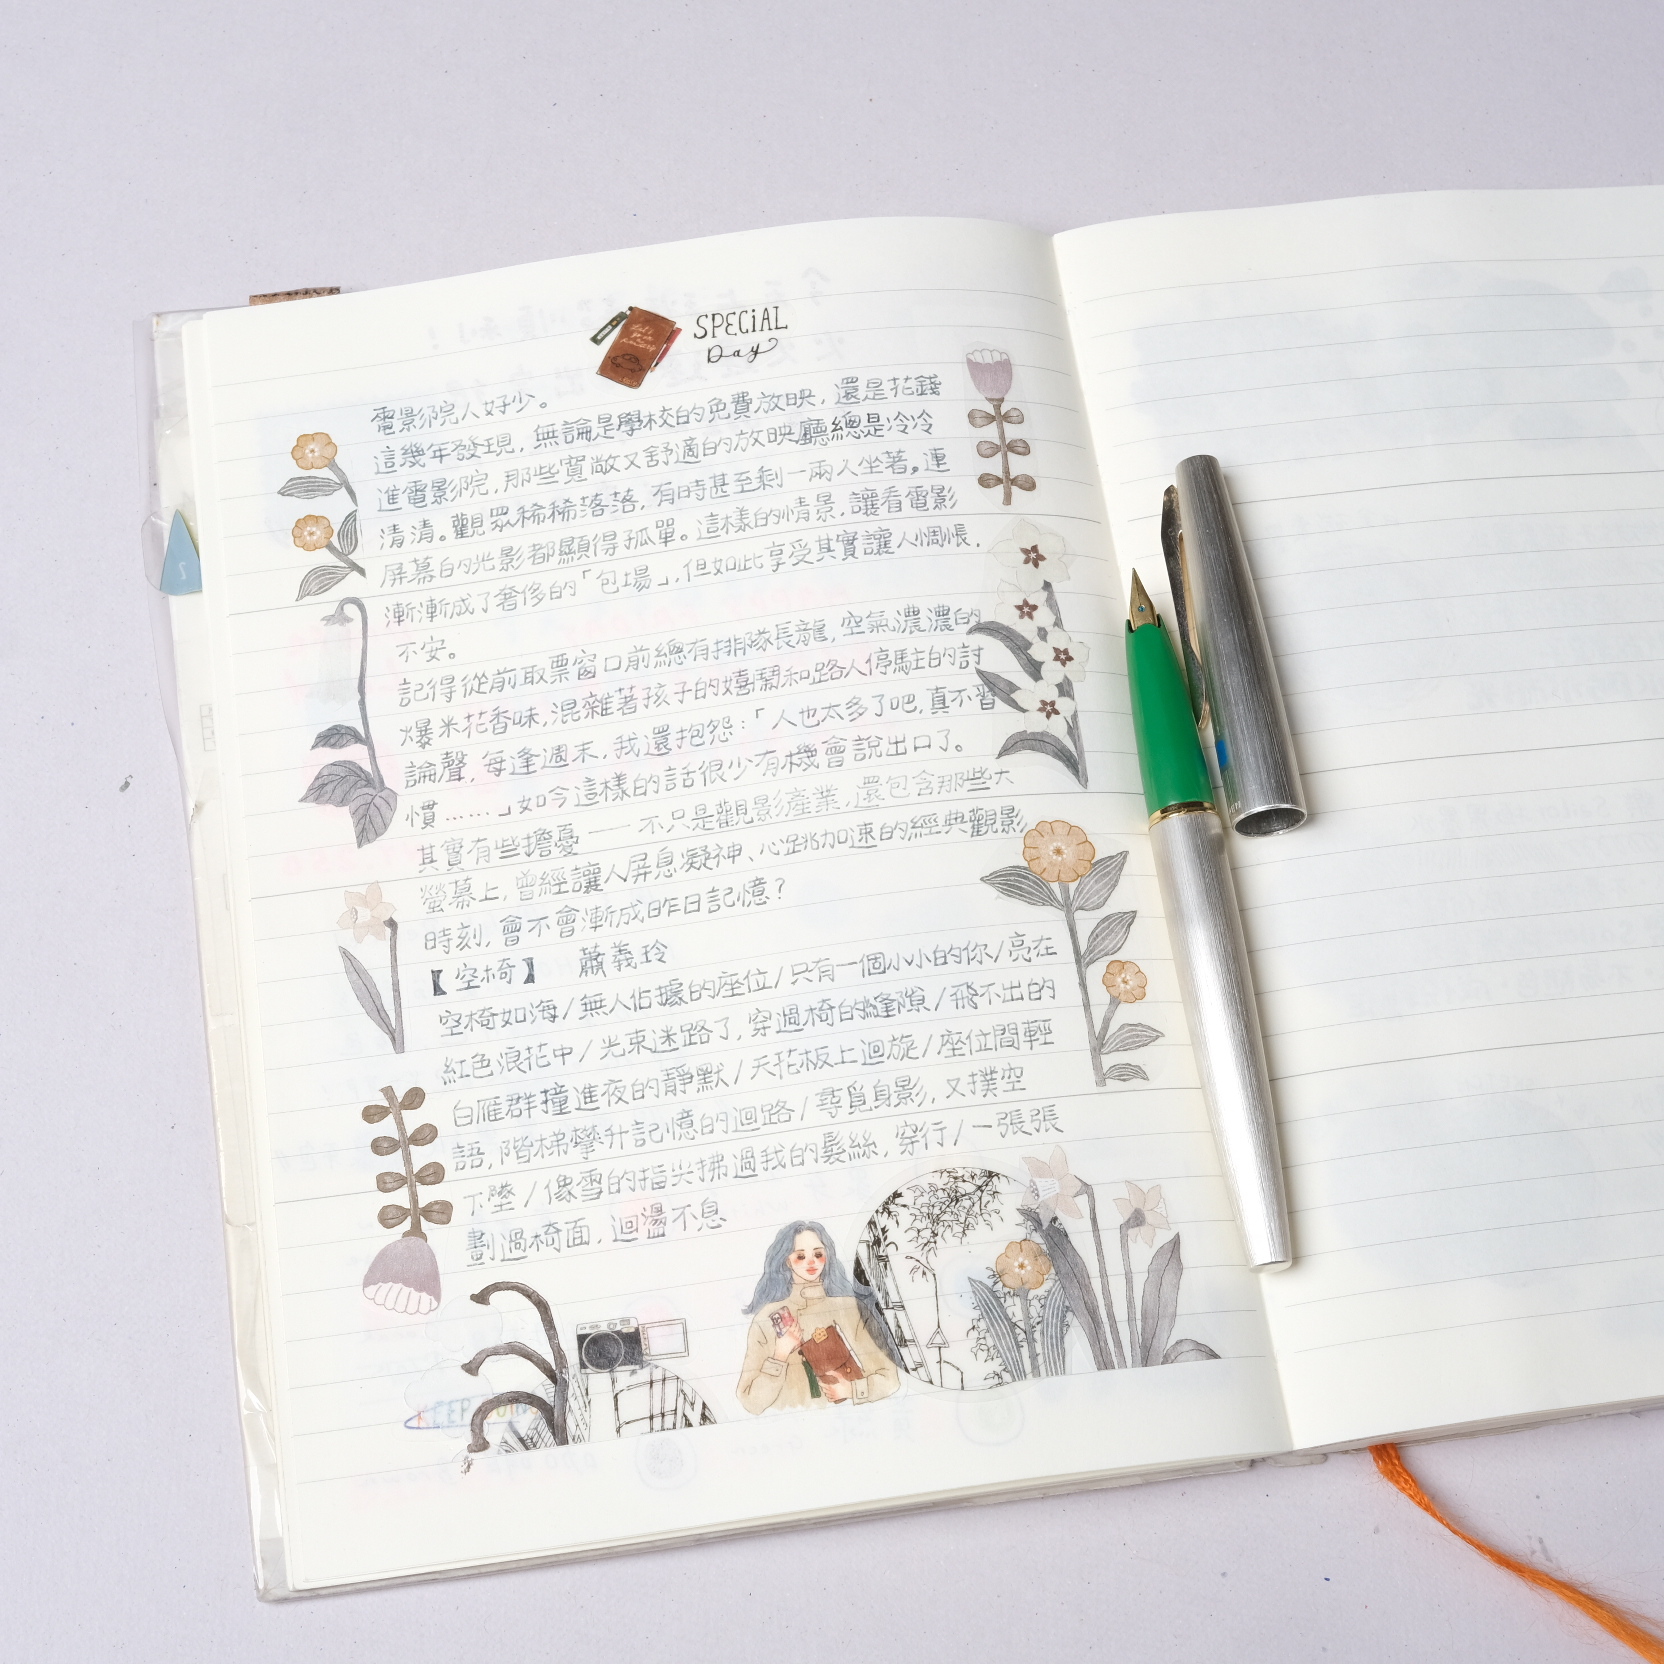 SPECiAL
Day
電影院人好少。
這幾年發現，無論是學校的免費放映，還是花錢
進電影院，那些寬敞又舒適的放映廳總是冷冷
清清。觀眾稀稀落落，有時甚至剩一兩人坐著。連
屏幕的光影都顯得孤單。這樣的情景，讓看電影
漸漸成了奢侈的「包場」，但如此享受其實讓人惆悵，
不安。
記得從前取票窗口前總有排隊長龍，空氣濃濃的
爆米花香味，混雜著孩子的嬉鬧和路人停駐的討
論聲，每逢週末，我還抱怨：「人也太多了吧，真不習
慣……」如今這樣的話很少有機會說出口了。
其實有些擔憂——不只是觀影產業，還包含那些大
螢幕上，曾經讓人屏息凝神、心跳加速的經典觀影
時刻，會不會漸成昨日記憶？
【空椅】 蕭義玲
空椅如海/無人佔據的座位/只有一個小小的你/亮在
紅色浪花中/光束迷路了，穿過椅的縫隙/飛不出的
白雁群撞進夜的靜默/天花板上迴旋/座位間輕
語，階梯攀升記憶的迴路/尋覓身影，又撲空
下墜/像雪的指尖拂過我的髮絲，穿行/一張張
劃過椅面，迴盪不息